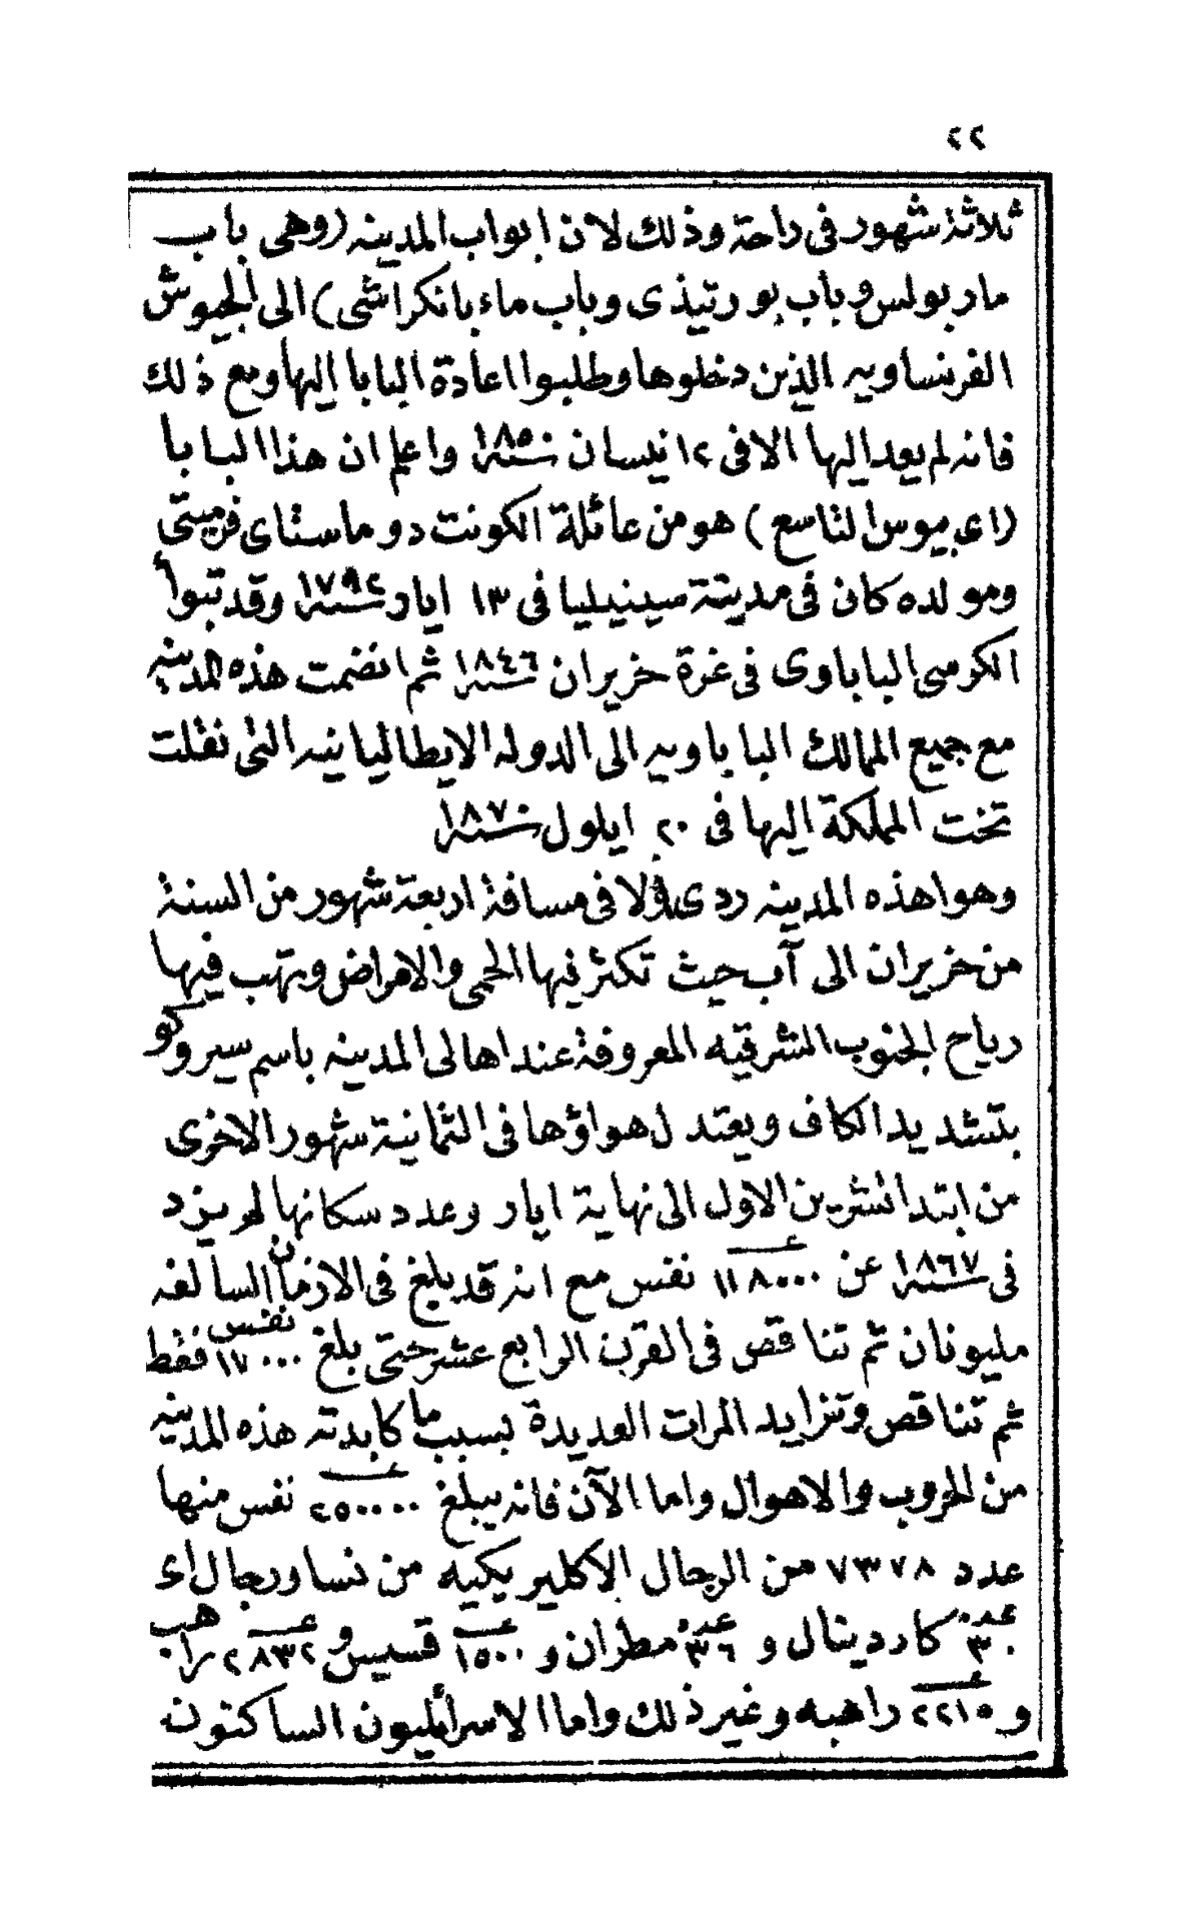 ٢٢
ثلاثة شهور فى راحة وذلك لان ابواب المدينه (وهى باب
مار بولس وباب بورتيذى وباب ماء بانكراشى) الى الجيوش
الفرنساويه الذين دخلوها وطلبوا اعادة البابا اليها ومع ذلك
فانه لم يعد اليها الا فى ١٢ نيسان سنة ١٨٥٠ واعلم ان هذا البابا
(اى بيوس التاسع) هو من عائلة الكونت دو ماستاى فرميتى
ومولده كان فى مدينة سينيليا فى ١٣ ايار سنة ١٧٩٢ وقد تبوأ
الكرسى الباباوى فى غرة حزيران سنة ١٨٤٦ ثم انضمت هذه المدينه
مع جميع الممالك الباباويه الى الدوله الايطاليانيه التى نقلت
تخت المملكة اليها فى ٢٠ ايلول سنة ١٨٧٠
وهوا هذه المدينه ردى اولا فى مسافة اربعة شهور من السنة
من حزيران الى آب حيث تكثر فيها الحمى والامراض وتهب فيها
رياح الجنوب الشرقيه المعروفة عند اهالى المدينه باسم سيروكو
بتشديد الكاف ويعتدل هواؤها فى الثمانية شهور الاخرى
من ابتدا تشرين الاول الى نهاية ايار وعدد سكانها لم يزد
فى سنة ١٨٦٧ عن عدد ١١٨٠٠٠ نفس مع انه قد بلغ فى الازمان السالفه
مليونان ثم تناقص فى القرن الرابع عشر حتى بلغ ١٧٠٠٠ نفس فقط
ثم تناقص وتزايد المرات العديدة بسبب ما كابدته هذه المدينه
من الحروب والاهوال واما الآن فانه يبلغ عدد ٢٥٠٠٠٠ نفس منها
عدد ٧٣٧٨ من الرجال الاكليريكيه من نسا ورجال اى
عدد ٣٠ كاردينال و عدد ٣٦ مطران و عدد ١٥٠٠ قسيس و عدد ٢٨٣٢ راهب
و عدد ٢٢١٥ راهبه وغير ذلك واما الاسرائليون الساكنون